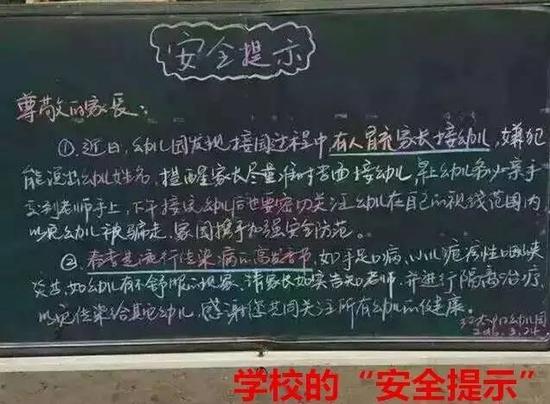 安全提示
尊敬的家长：
①近日,幼儿园发现接园过程中有人冒充家长接幼儿,嫌犯
能说出幼儿姓名,提醒家长尽量准时当面接幼儿,早上幼儿务必亲手
交到老师手上,下午接完幼儿后也要密切关注幼儿在自己的视线范围内,
以免幼儿被骗走,家园携手加强安全防范。
②春季是流行传染病的高发季节,如手足口病,小儿疱疹性咽峡
炎等,如幼儿有不舒服的现象,请家长如实告知老师,并进行隔离治疗,
以免传染给其它幼儿,感谢您共同关注所有幼儿的健康。
幼儿园
3.24
学校的“安全提示”